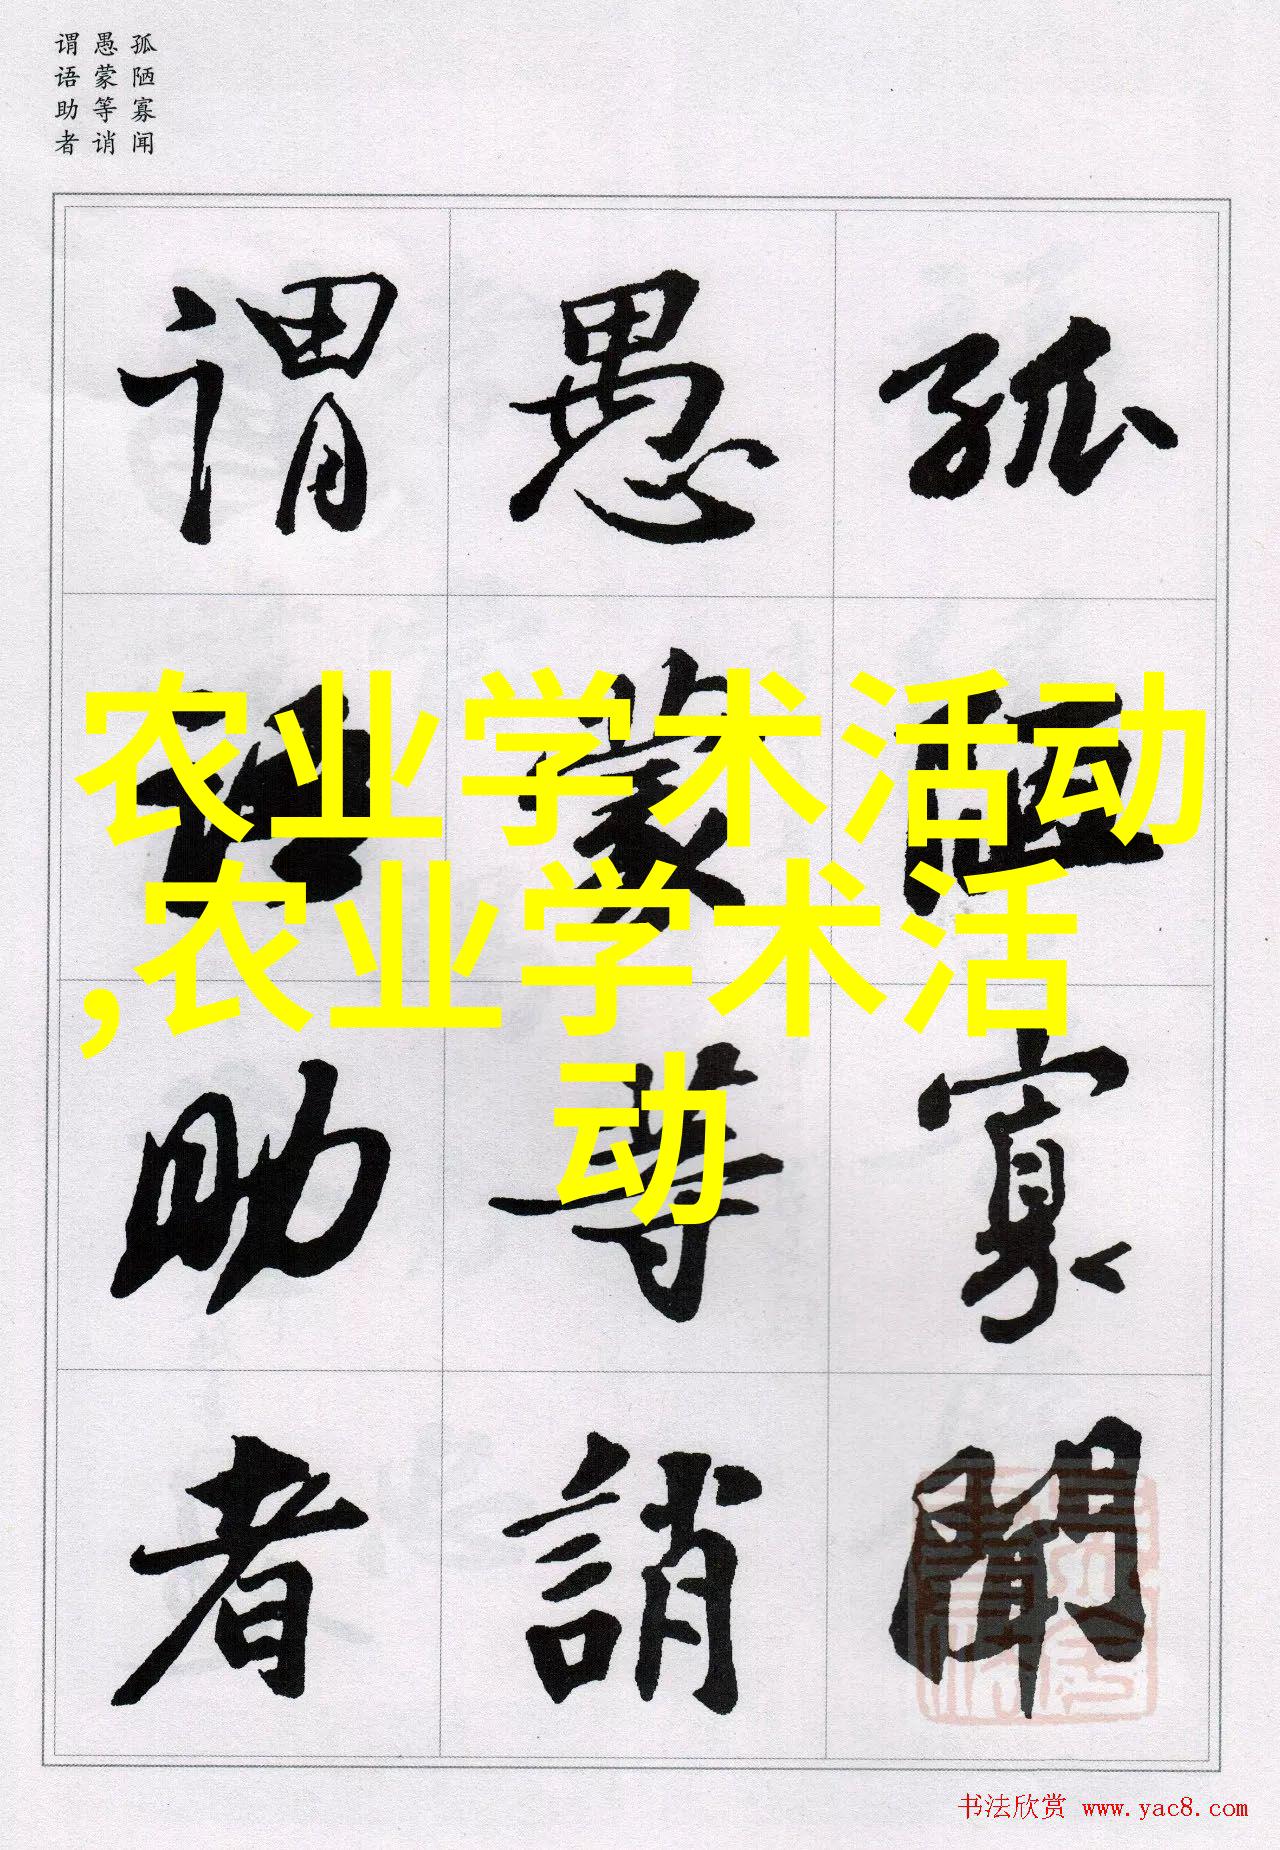 孤陋寡闻
愚蒙等诮
谓语助者
孤陋寡聞
愚蒙等誚
謂語助者
农业学术活动
,农业学术活
动
书法欣赏 www.yac8.com